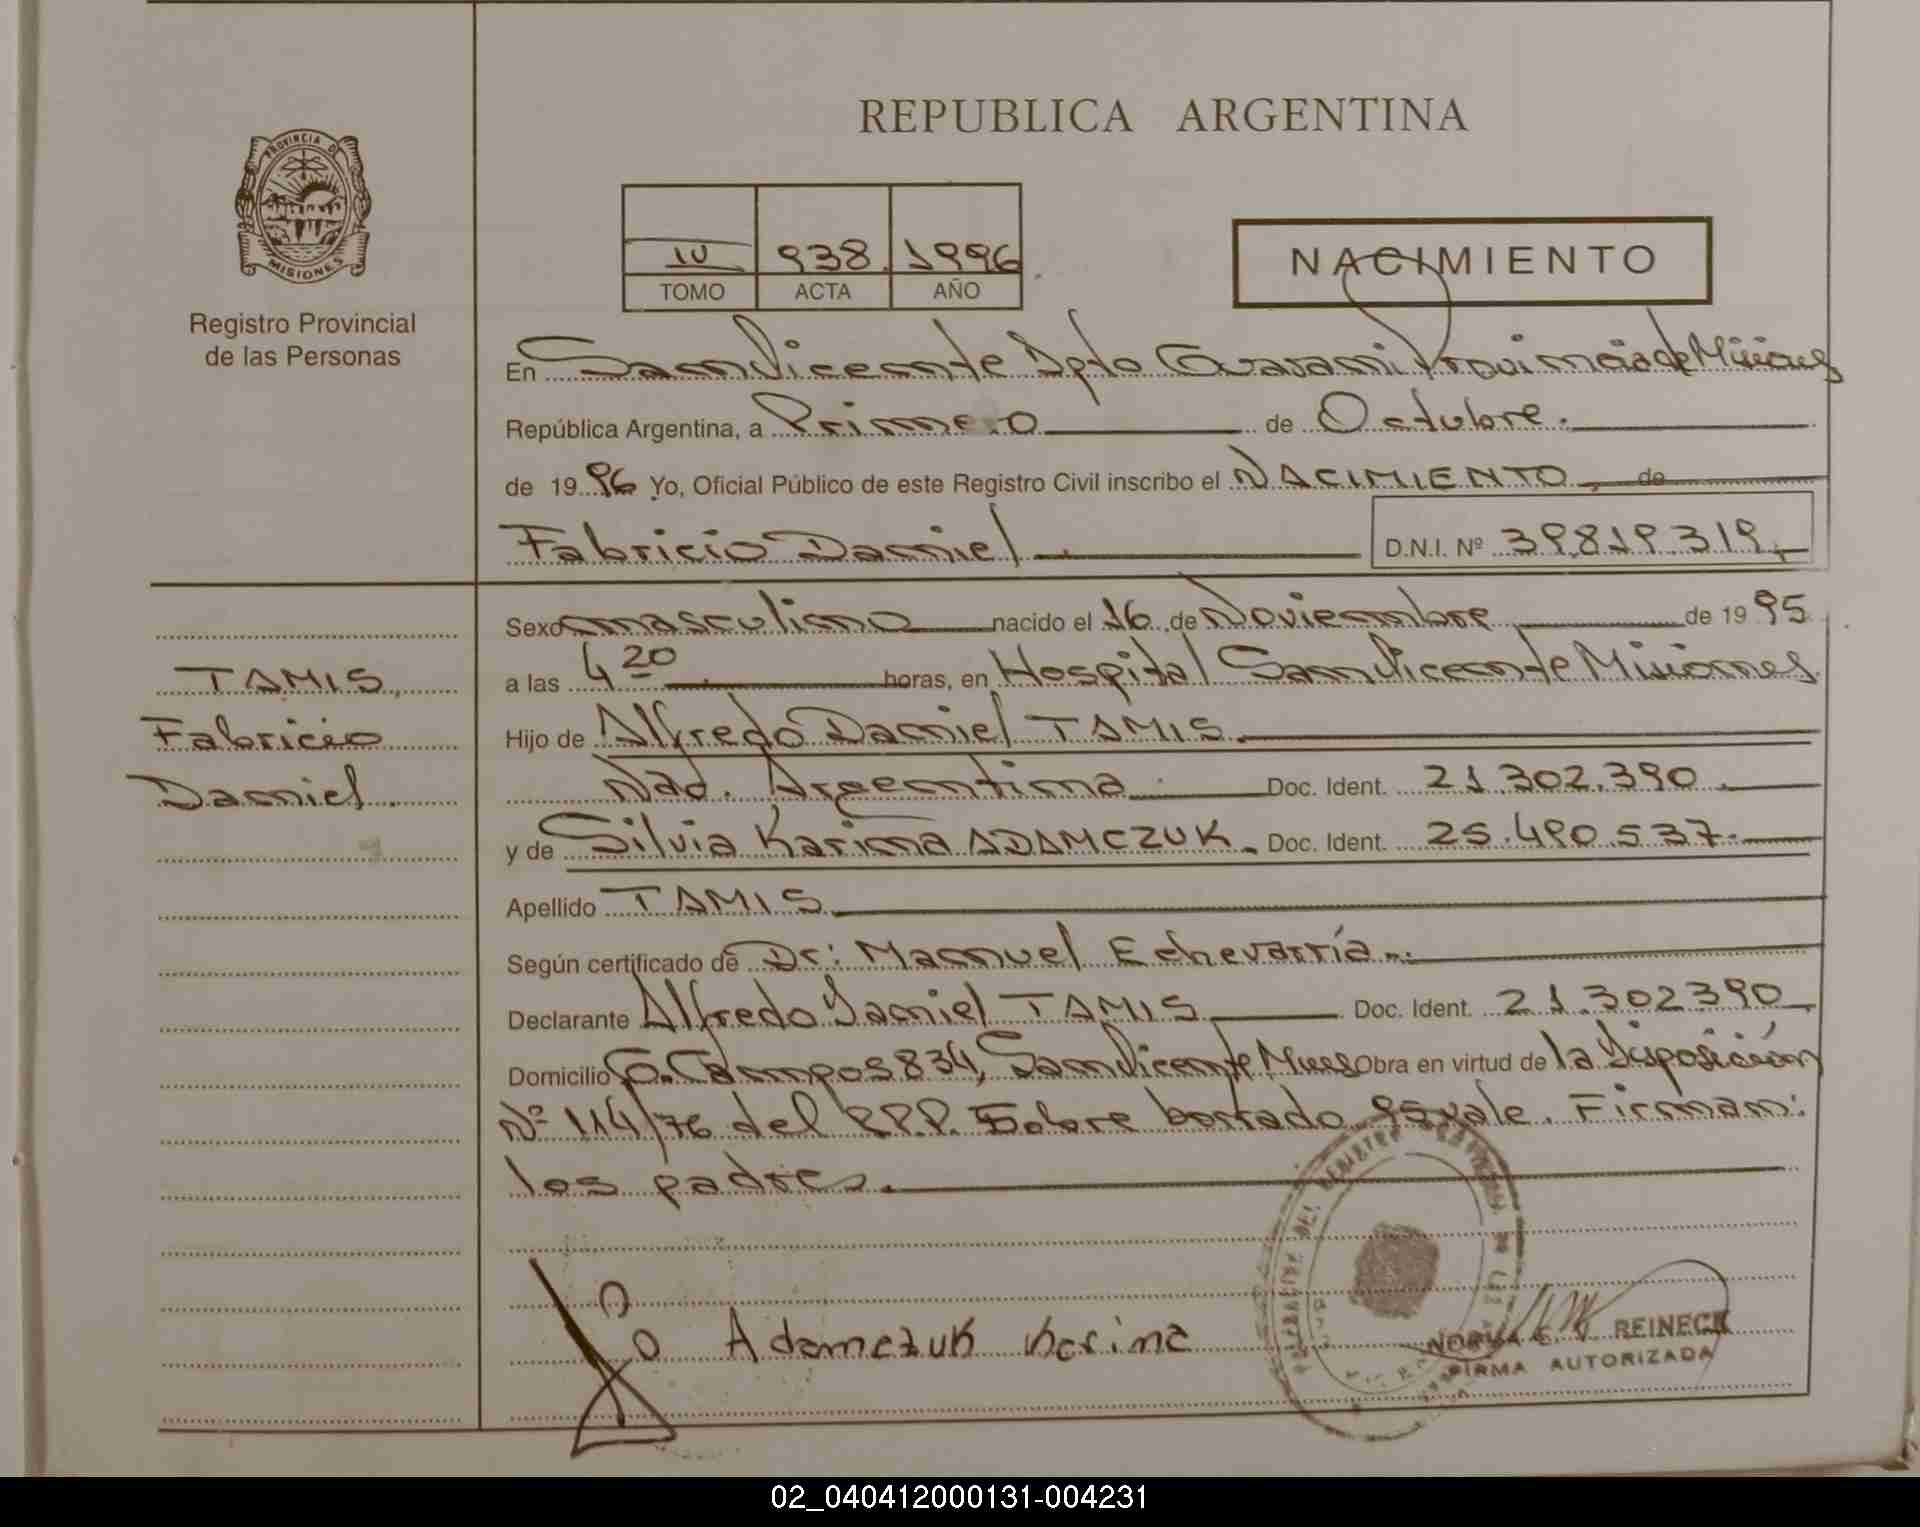 REPUBLICA ARGENTINA
PROVINCIA D
MISIONES
Registro Provincial
de las Personas
IV 938 1996
TOMO ACTA AÑO
NACIMIENTO
En San Vicente Dpto Guarani Provincia de Misiones
República Argentina, a Primero de Octubre.
de 1996 Yo, Oficial Público de este Registro Civil inscribo el NACIMIENTO de
Fabricio Daniel D.N.I. Nº 39.819.319
Sexo masculino nacido el 16 de Noviembre de 1995
a las 4 20 horas, en Hospital San Vicente Misiones
Hijo de Alfredo Daniel TAMIS.
Nac. Argentina Doc. Ident. 21.302.390
y de Silvia Karina ADAMCZUK. Doc. Ident. 25.490.537.
Apellido TAMIS
Según certificado de Dr: Manuel Echevarría.
Declarante Alfredo Daniel TAMIS Doc. Ident. 21.302.390
Domicilio G. Campos 834, San Vicente Mnes Obra en virtud de la Disposición
Nº 114/76 del R.P.P. Sobre borrado 95 vale. Firman:
los padres.
TAMIS,
Fabricio
Daniel.
Adamczuk Karina
NORMA E. V. REINECK
FIRMA AUTORIZADA
02_040412000131-004231